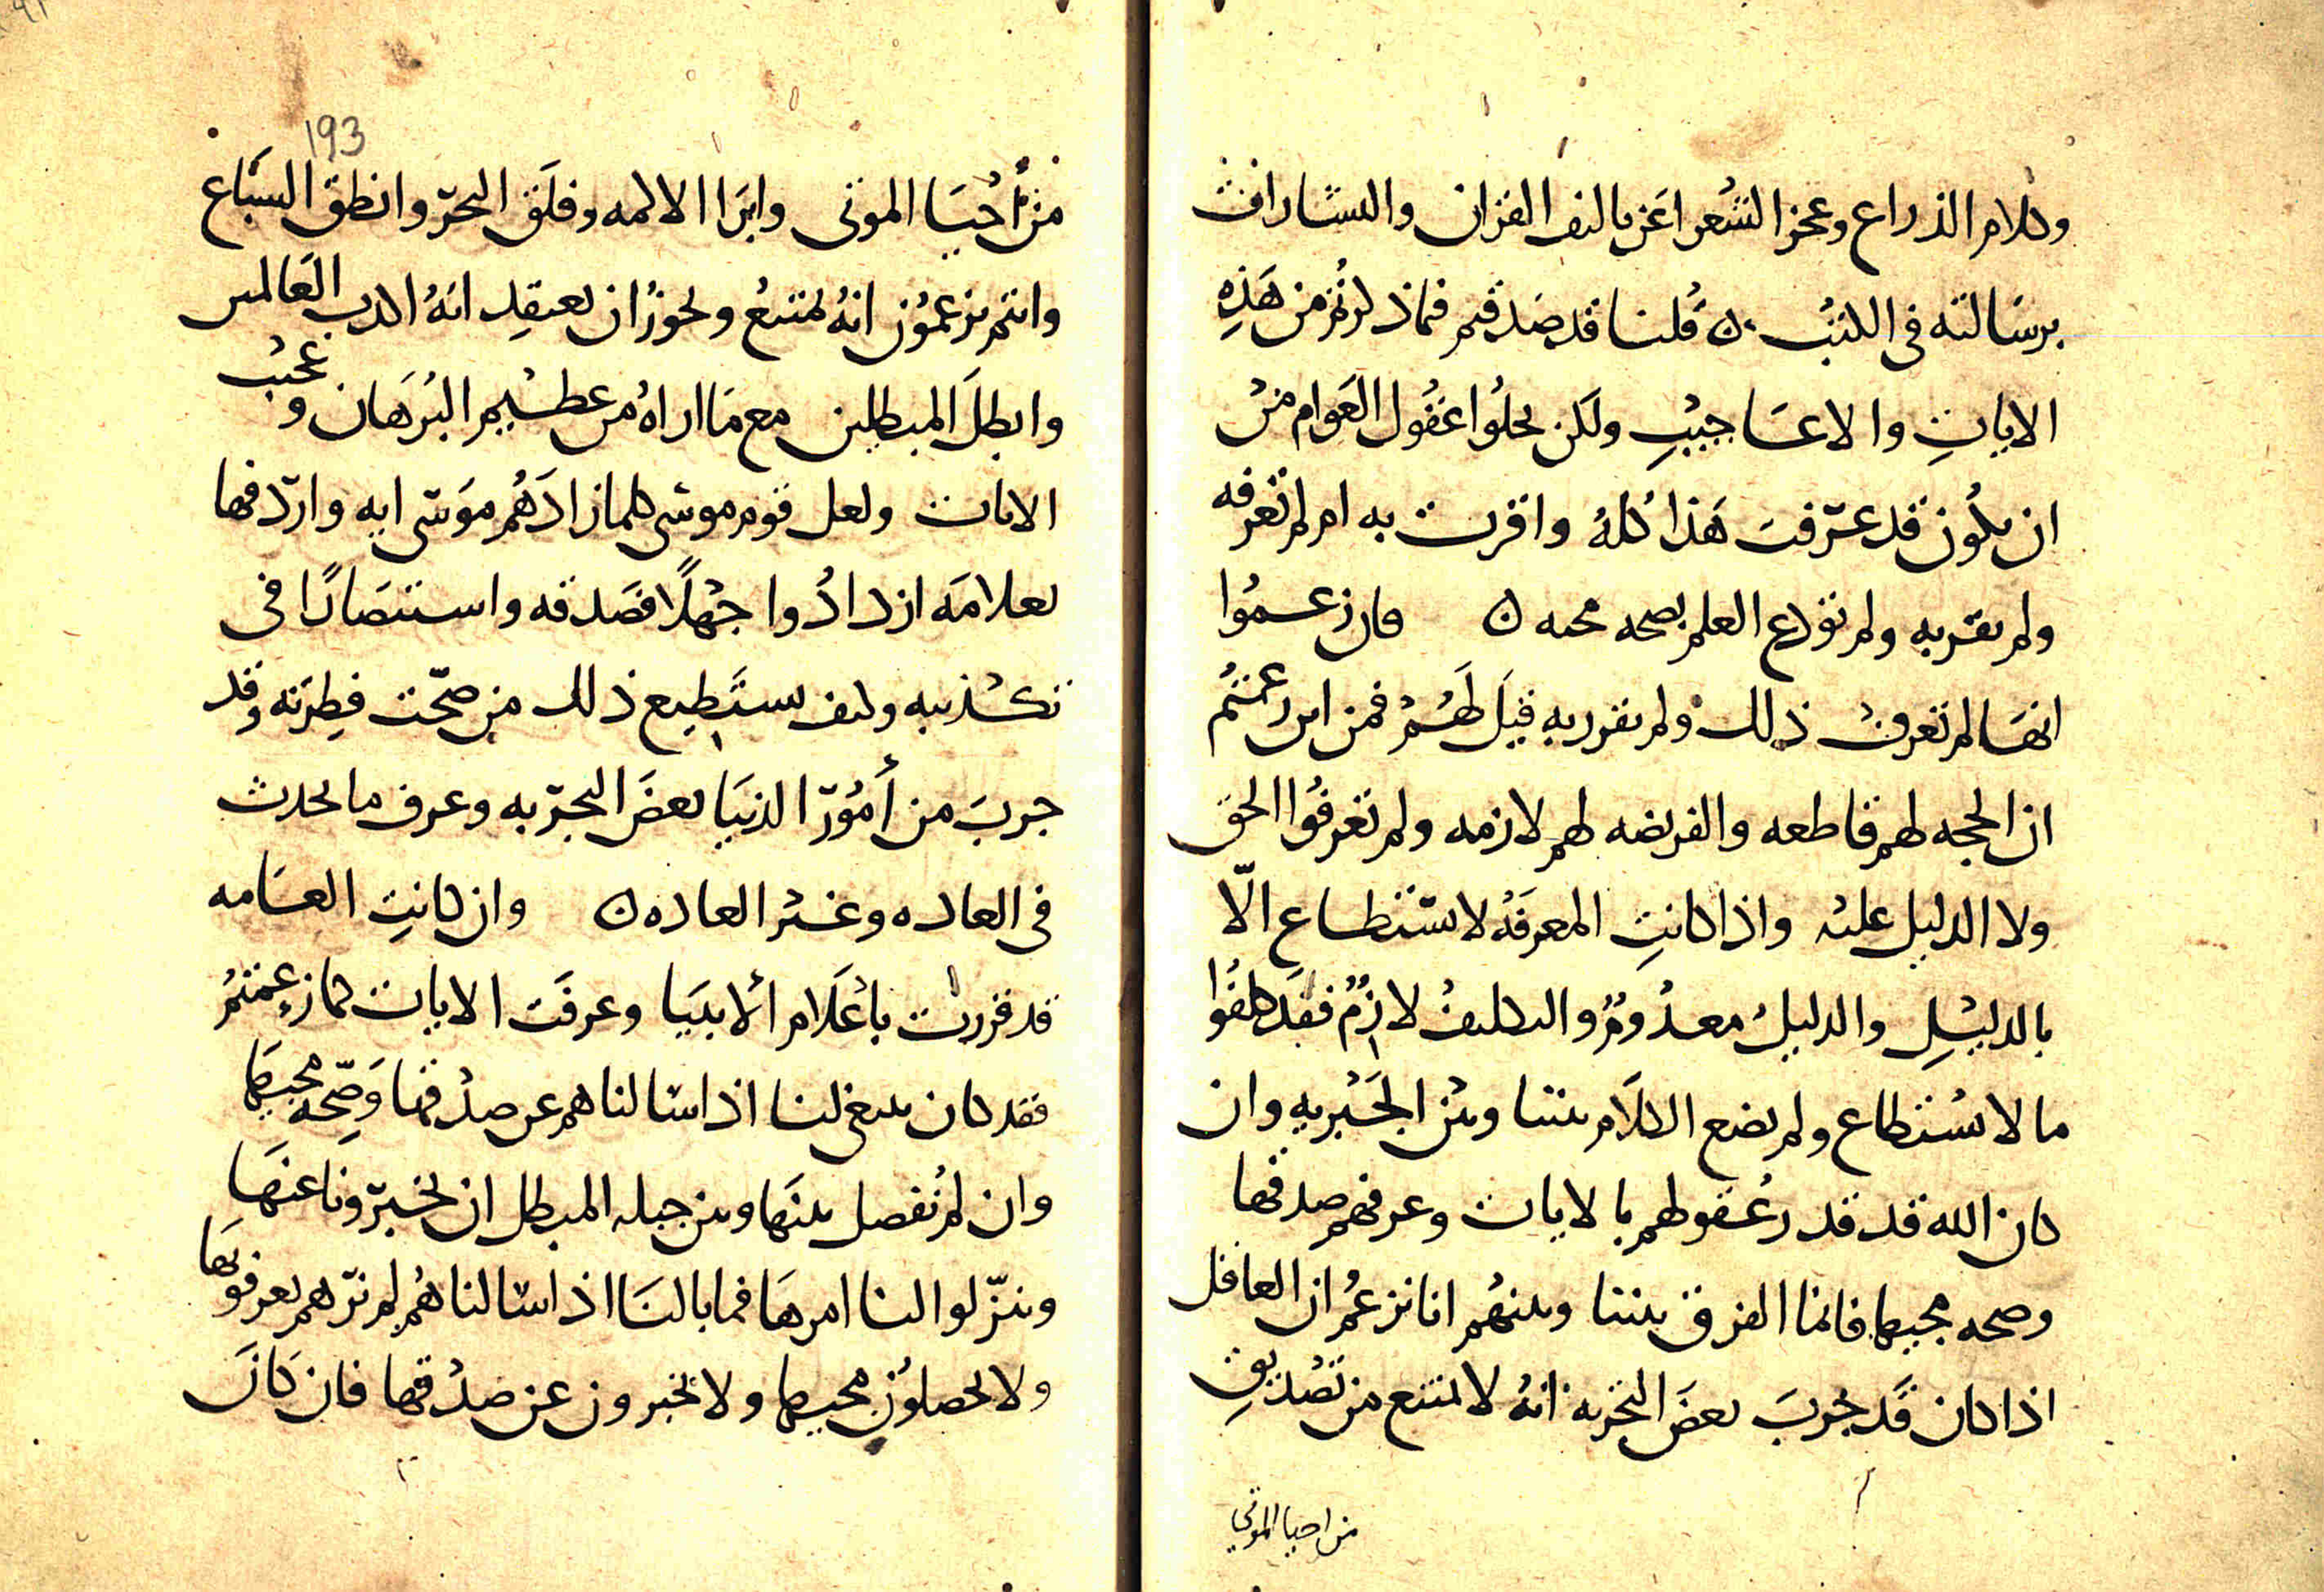 وكلام الذراع وعجز الشعرا عن تاليف القران والبشارات
برسالته في الكتب ٥ قلنا قد صدقتم فماذ لرتم من هذه
الايات والاعاجيب ولكن يحلوا عقول العوام من
ان يكون قد عرفت هذا كله واقرت به ام لم تعرفه
ولم تقر به ولم تودع العلم بصحه مجيه ٥ فان زعموا
انها لم تعرف ذلك ولم تقرر به قيل لهم فمن اين زعمتم
ان الحجه لهم قاطعه والفريضه لهم لازمه ولم تعرفوا الحق
ولا الدليل عليه واذا كانت المعرفه لا تستطاع الا
بالدليل والدليل معدوم والتكليف لازم فقد كلفوا
ما لا يستطاع ولم يضع الكلام بيننا وبين الجبريه وان
كان الله قد قدر عقولهم بالايات وعرفهم صدقها
وصحه مجيها فانما الفرق بيننا وبينهم انا نزعم ان العاقل
اذا كان قد جرب بعض التجربه انه لا يمتنع من تصديق
من احيا الموتي
193
من احيا الموتى وابرا الاكمه وفلق البحر وانطق السباع
وانتم تزعمون انه يمتنع ويجوز ان يعتقد انه اكدب العالمين
وابطل المبطلين مع ما اراه من عظيم البرهان وعجيب
الايات ولعل قوم موسى كلما زادهم موسى ايه واردفها
بعلامه ازدادوا جهلا فصدقه واستنصارا في
تكذيبه وكيف يستطيع ذلك من صحت فطرته وقد
جرب من أمور الدنيا بعض التجربه وعرف ما يحدث
في العاده وغير العاده ٥ وان كانت العامه
قد قررت بأعلام الانبيا وعرفت الايات كما زعمتم
فقد كان ينبغي لنا اذا سالناهم عن صدقها وصحه مجيها
وان لم تفصل بينها وبين حيله المبطل ان يخبرونا عنها
وينزلوا لنا امرها فما بالنا اذا سالناهم لم نرهم يعرفونها
ولا يحصلون مجيها ولا يخبرون عن صدقها فان كان